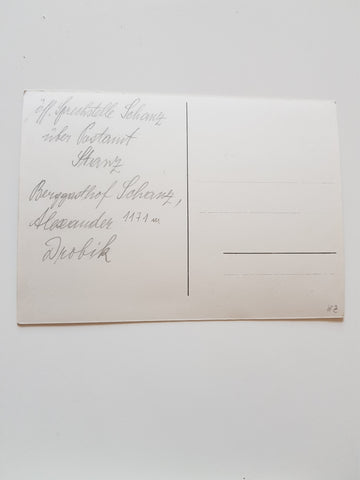 öff. Sprechstelle Schanz
über Postamt
Stanz
Berggasthof Schanz,
Alexander 1171 m.
Drobik